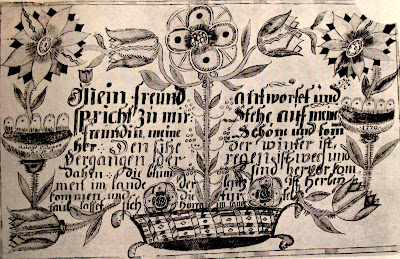 Mein freund antwortet und
spricht zu mir. Stehe auf meine
freundin, meine Schöne und kom
her. Den siehe der winter ist
vergangen der regen ist weg und
dahin die blum sind hervor kom
men im lande der lentz ist herbey
kommen, und die tur tel
taub lasset sich hören im
1770